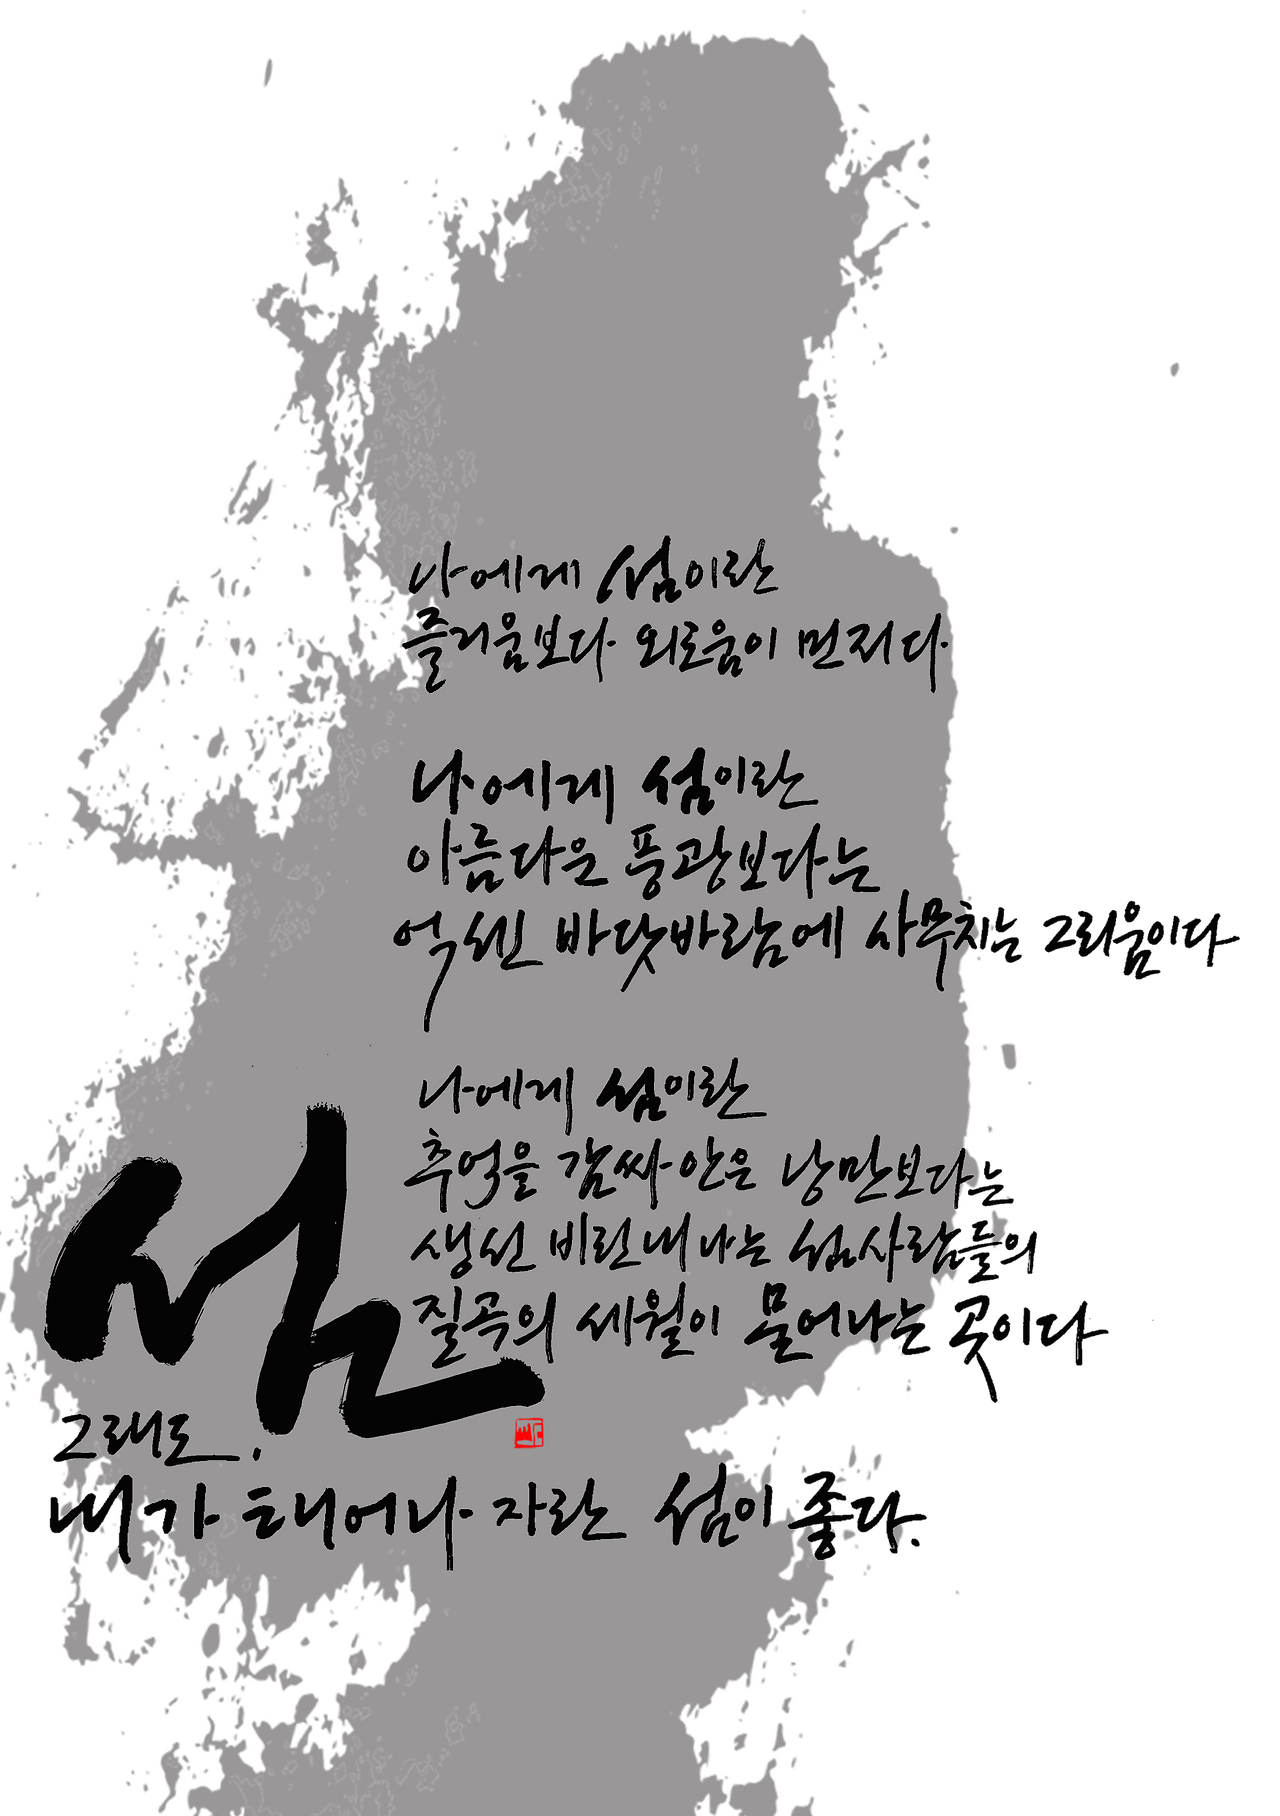 나에게 섬이란
즐거움보다 외로움이 먼저다
나에게 섬이란
아름다운 풍광보다는
억센 바닷바람에 사무치는 그리움이다
나에게 섬이란
추억을 감싸안은 낭만보다는
생선 비린내 나는 섬사람들의
질곡의 세월이 묻어나는 곳이다
섬
그래도,
내가 태어나 자란 섬이 좋다.